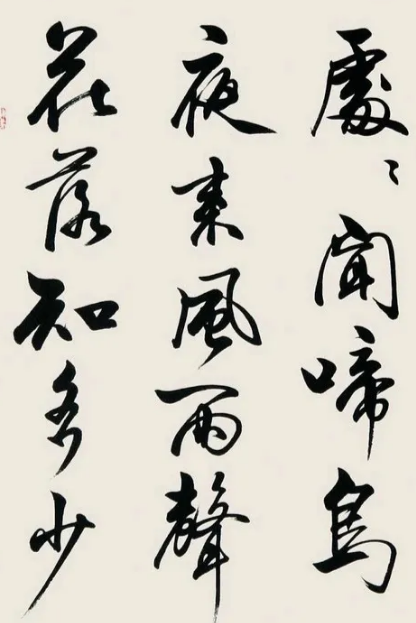 處〻聞啼鳥
夜来風雨聲
花落知多少